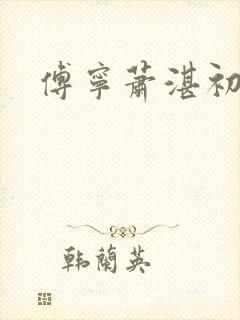 傅寧蕭湛初
韩蘭英